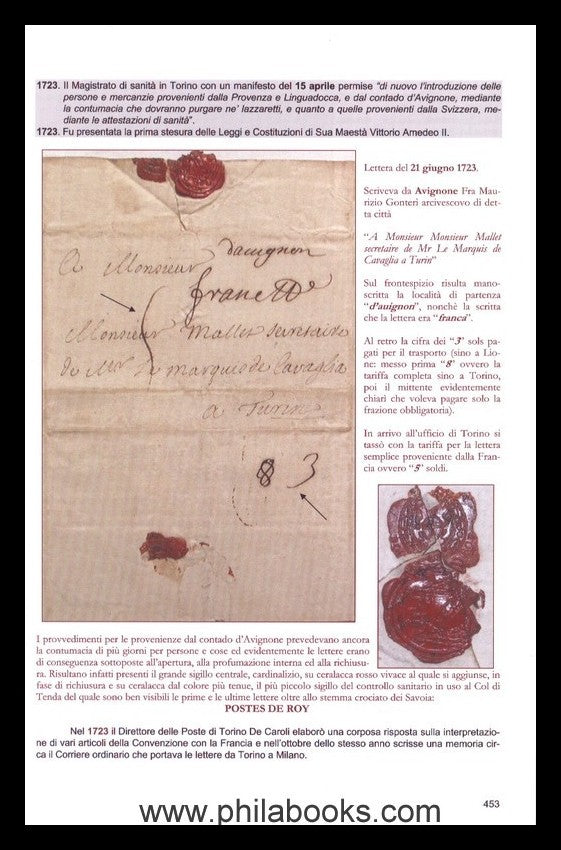 1723. Il Magistrato di sanità in Torino con un manifesto del 15 aprile permise "di nuovo l'introduzione delle
persone e mercanzie provenienti dalla Provenza e Linguadocca, e dal contado d'Avignone, mediante
la contumacia che dovranno purgare ne' lazzaretti, e quanto a quelle provenienti dalla Svizzera, me-
diante le attestazioni di sanità".
1723. Fu presentata la prima stesura delle Leggi e Costituzioni di Sua Maestà Vittorio Amedeo II.
d'auignon
A Monsieur
franc
Monsieur Mallet secretaire
de Mr Le marquis de Cavaglia
a Turin
8 3
Lettera del 21 giugno 1723.
Scriveva da Avignone Fra Mau-
rizio Gonteri arcivescovo di det-
ta città
"A Monsieur Monsieur Mallet
secretaire de Mr Le Marquis de
Cavaglia a Turin"
Sul frontespizio risulta mano-
scritta la località di partenza
"d'auignon", nonchè la scritta
che la lettera era "franca".
Al retro la cifra dei "3" sols pa-
gati per il trasporto (sino a Lio-
ne: messo prima "8" ovvero la
tariffa completa sino a Torino,
poi il mittente evidentemente
chiarì che voleva pagare solo la
frazione obbligatoria).
In arrivo all'ufficio di Torino si
tassò con la tariffa per la lettera
semplice proveniente dalla Fran-
cia ovvero "5" soldi.
I provvedimenti per le provenienze dal contado d'Avignone prevedevano ancora
la contumacia di più giorni per persone e cose ed evidentemente le lettere erano
di conseguenza sottoposte all'apertura, alla profumazione interna ed alla richiusu-
ra. Risultano infatti presenti il grande sigillo centrale, cardinalizio, su ceralacca rosso vivace al quale si aggiunse, in
fase di richiusura e su ceralacca dal colore più tenue, il più piccolo sigillo del controllo sanitario in uso al Col di
Tenda del quale sono ben visibili le prime e le ultime lettere oltre allo stemma crociato dei Savoia:
POSTES DE ROY
Nel 1723 il Direttore delle Poste di Torino De Caroli elaborò una corposa risposta sulla interpretazio-
ne di vari articoli della Convenzione con la Francia e nell'ottobre dello stesso anno scrisse una memoria cir-
ca il Corriere ordinario che portava le lettere da Torino a Milano.
453
www.philabooks.com